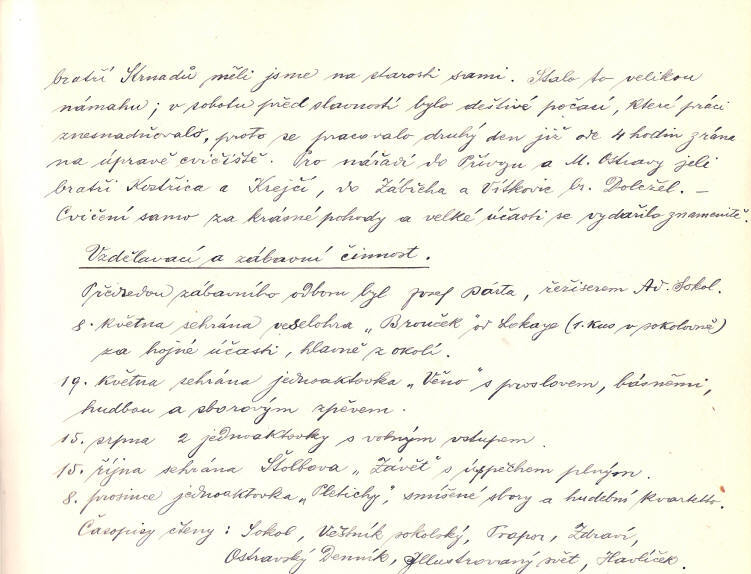 bratří Strnadů měli jsme na starosti sami. Stalo to velikou
námahu; v sobotu před slavností bylo deštivé počasí, které práci
znesnadňovalo, proto se pracovalo druhý den již ode 4 hodin zrána
na úpravě cvičiště. Pro nářadí do Přívozu a M. Ostravy jeli
bratři Kostřica a Krejčí, do Zábřeha a Vítkovic br. Doležel. –
Cvičení samo za krásné pohody a velké účasti se vydařilo znamenitě.
Vzdělavací a zábavní činnost.
Předsedou zábavního odboru byl Josef Bárta, režiserem Ad. Sokol.
8. května sehrána veselohra „Brouček" od Lokaye (1. kus v sokolovně)
za hojné účasti, hlavně z okolí.
19. května sehrána jednoaktovka „Věno" s proslovem, básněmi,
hudbou a sborovým zpěvem.
15. srpna 2 jednoaktovky s volným vstupem.
15. října sehrána Štolbova „Závět" s úspěchem plným.
8. prosince jednoaktovka „Pletichy", smíšené sbory a hudební kvartetto.
Časopisy čteny: Sokol, Věstník sokolský, Prapor, Zdraví,
Ostravský Denník, Illustrovaný svět, Havlíček.